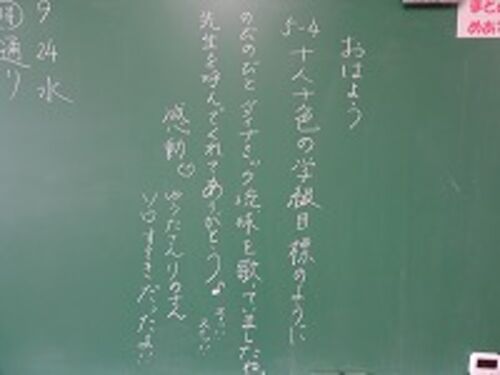 おはよう
5-4 十人十色の学級目標のように
のびのびとダイナミックに を歌っていましたね。
先生を呼んでくれてありがとう♪
感動♡
ゆうたさんりのさん
ソロすてきだったよ!!
9
24
水
通り